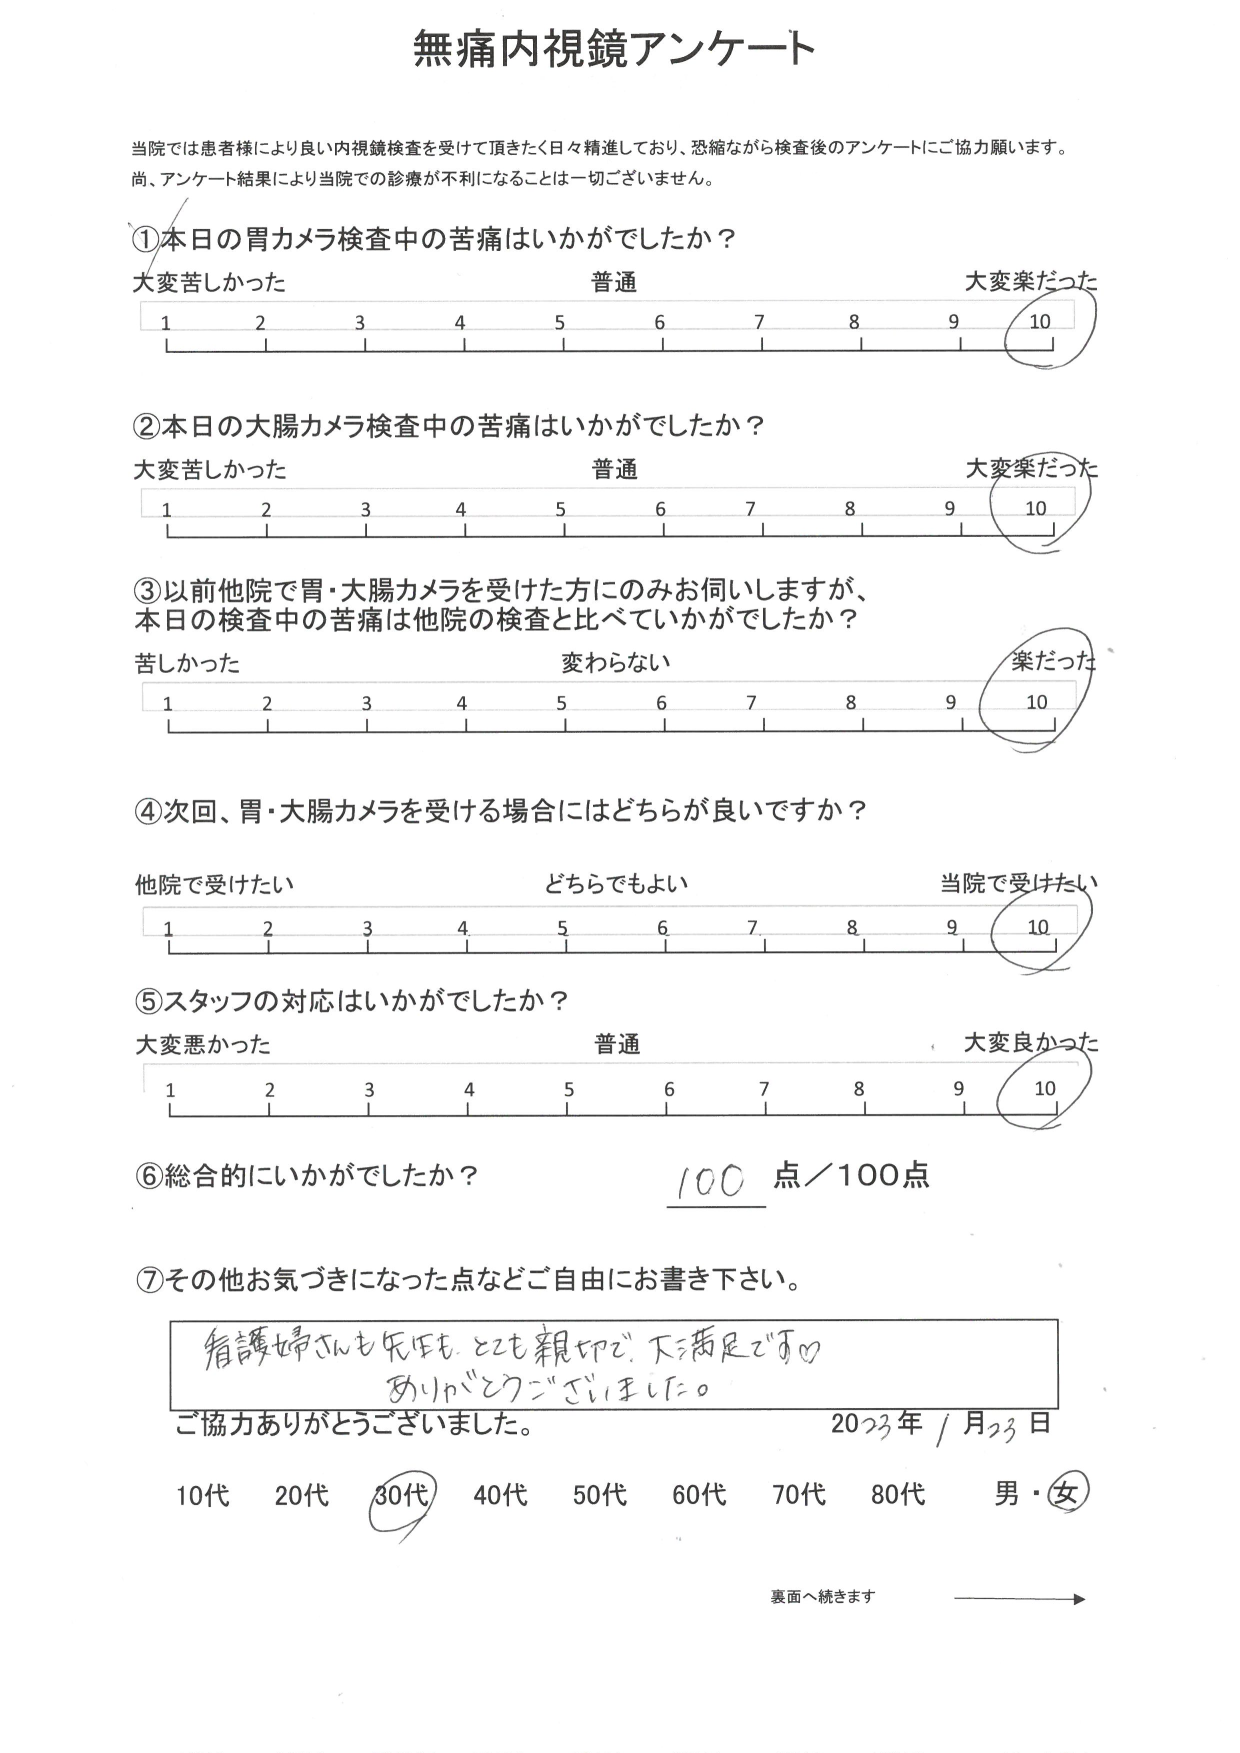 無痛内視鏡アンケート
当院では患者様により良い内視鏡検査を受けて頂きたく日々精進しており、恐縮ながら検査後のアンケートにご協力願います。
尚、アンケート結果により当院での診療が不利になることは一切ございません。
①本日の胃カメラ検査中の苦痛はいかがでしたか？
大変苦しかった 普通 大変楽だった
1 2 3 4 5 6 7 8 9 10
②本日の大腸カメラ検査中の苦痛はいかがでしたか？
大変苦しかった 普通 大変楽だった
1 2 3 4 5 6 7 8 9 10
③以前他院で胃・大腸カメラを受けた方にのみお伺いしますが、
本日の検査中の苦痛は他院の検査と比べていかがでしたか？
苦しかった 変わらない 楽だった
1 2 3 4 5 6 7 8 9 10
④次回、胃・大腸カメラを受ける場合にはどちらが良いですか？
他院で受けたい どちらでもよい 当院で受けたい
1 2 3 4 5 6 7 8 9 10
⑤スタッフの対応はいかがでしたか？
大変悪かった 普通 大変良かった
1 2 3 4 5 6 7 8 9 10
⑥総合的にいかがでしたか？ 100 点／100点
⑦その他お気づきになった点などご自由にお書き下さい。
看護婦さんも先生も、とても親切で、大満足です♡
ありがとうございました。
ご協力ありがとうございました。 2023年 1月23日
10代 20代 30代 40代 50代 60代 70代 80代 男・女
裏面へ続きます